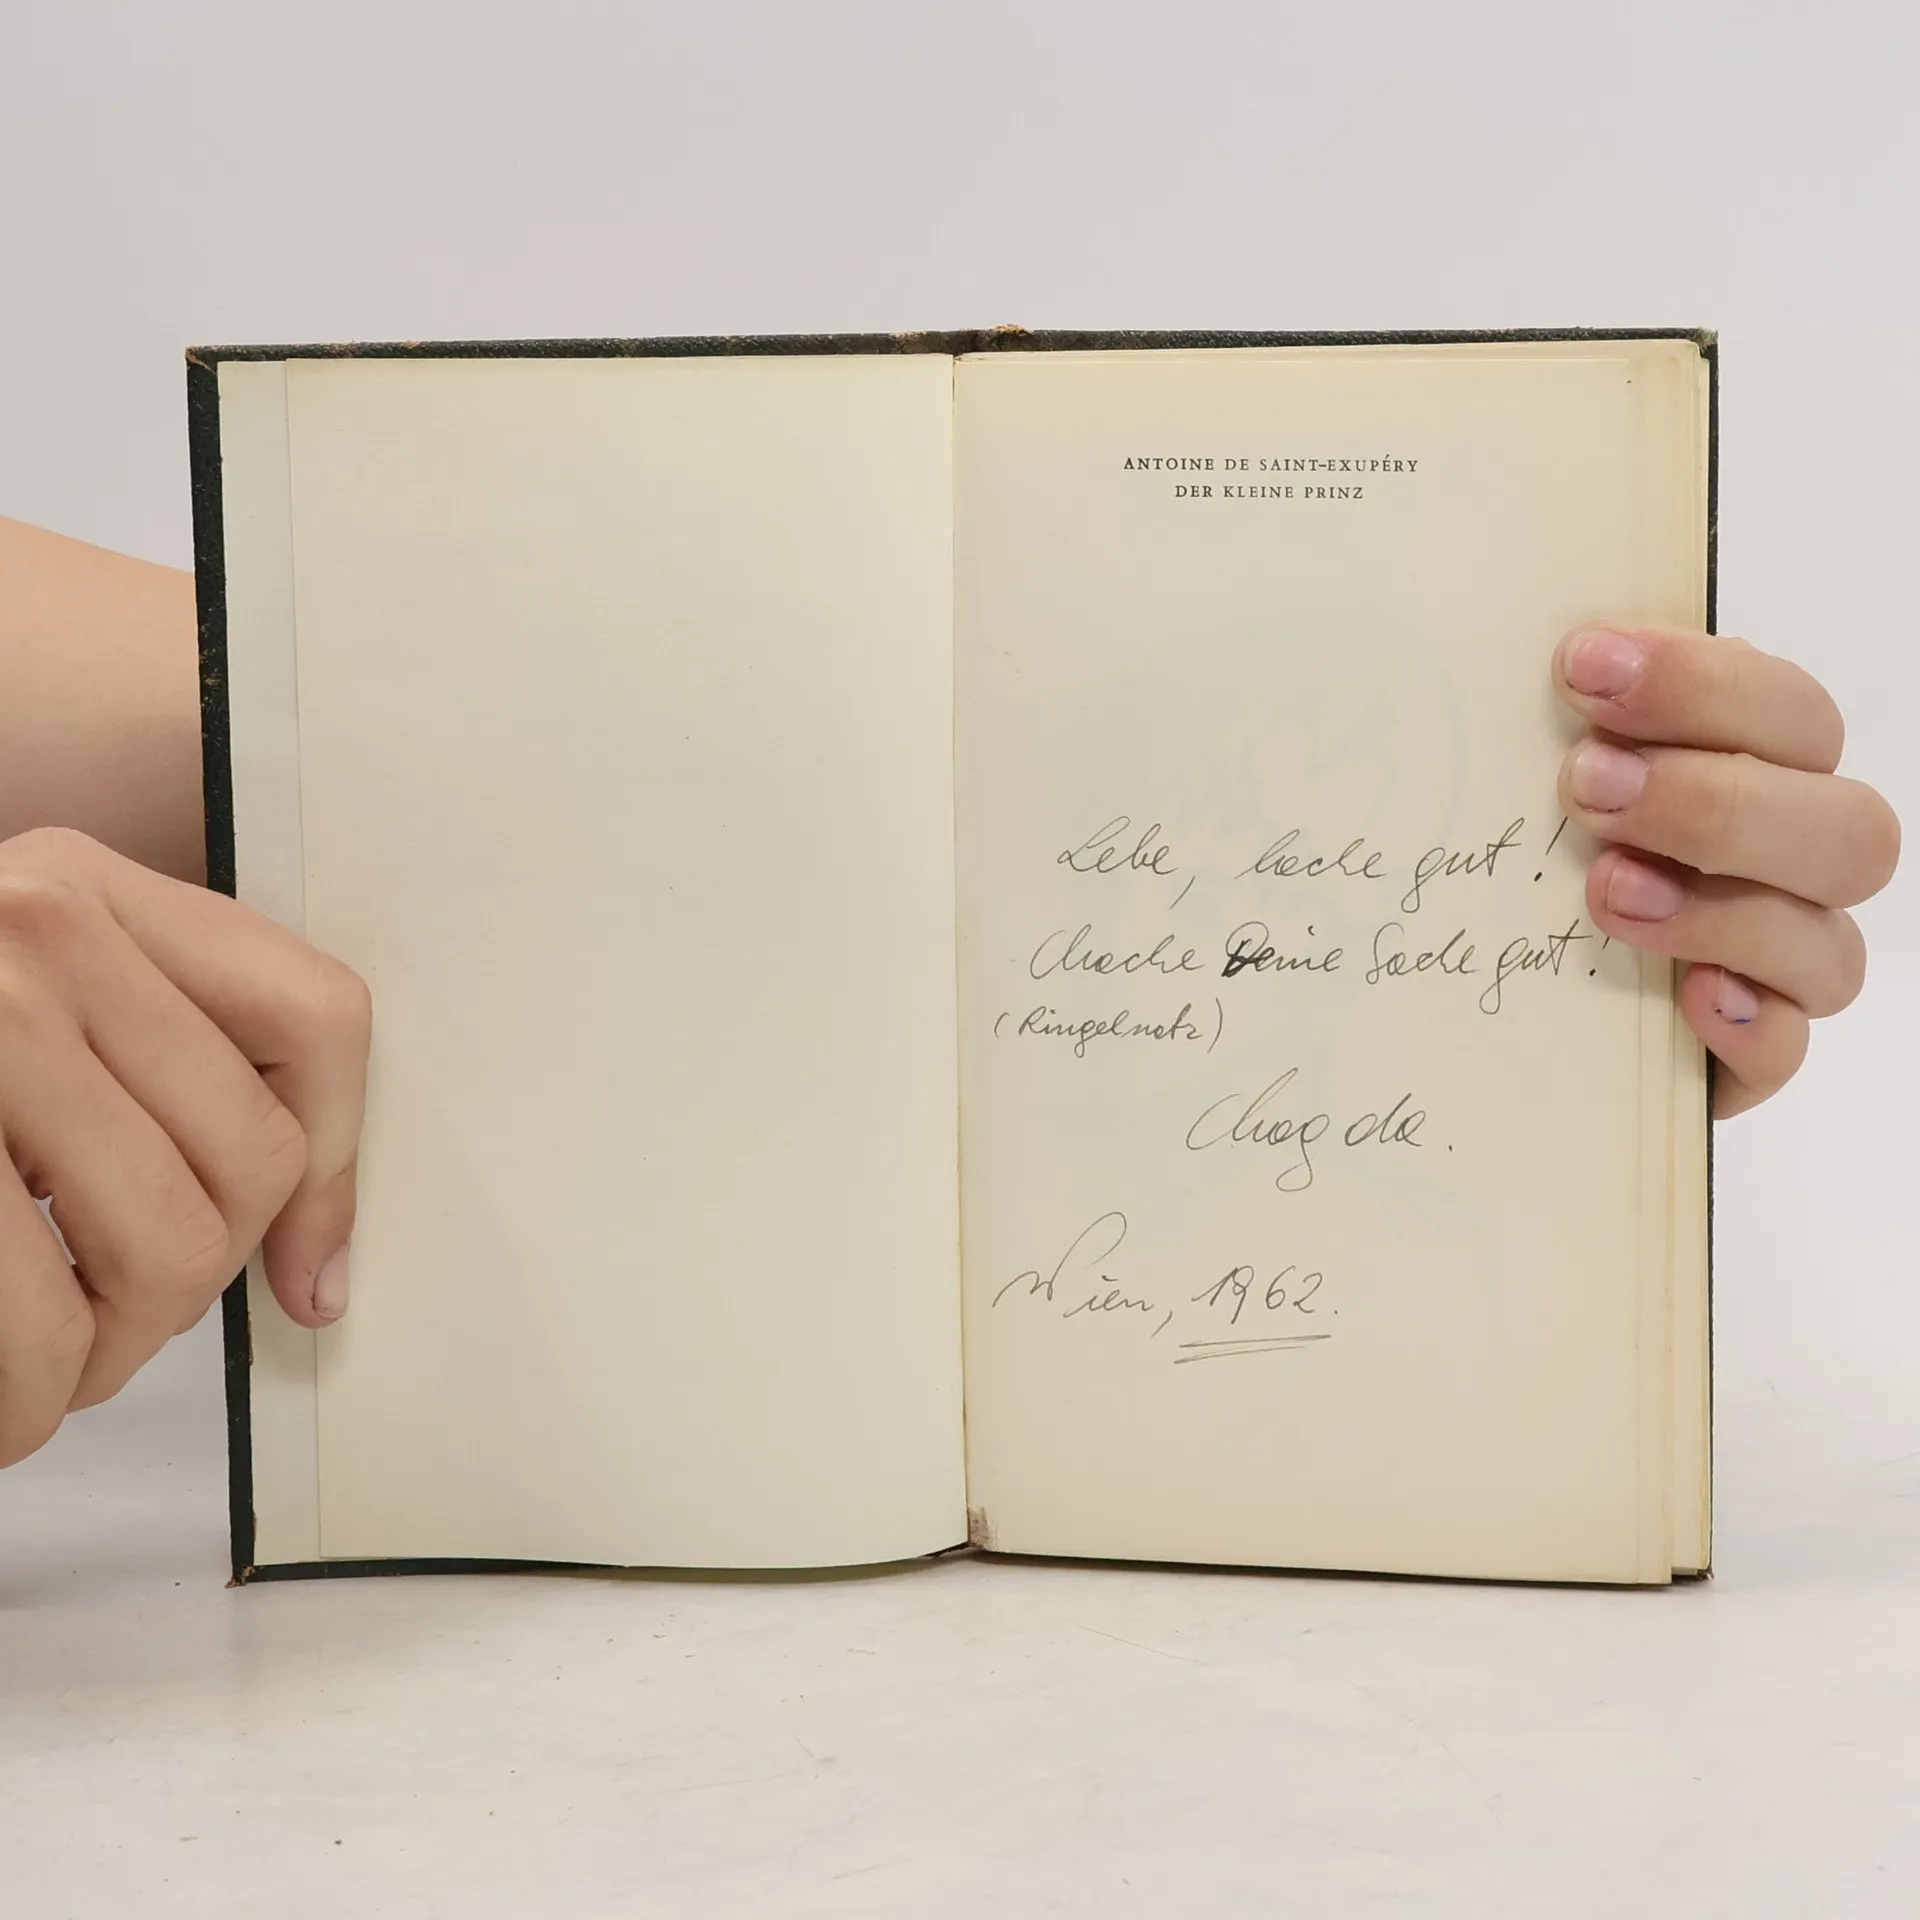 ANTOINE DE SAINT-EXUPÉRY
DER KLEINE PRINZ
Lebe, lache gut!
Mache Deine Sache gut!
(Ringelnatz)
Magda.
Wien, 1962.